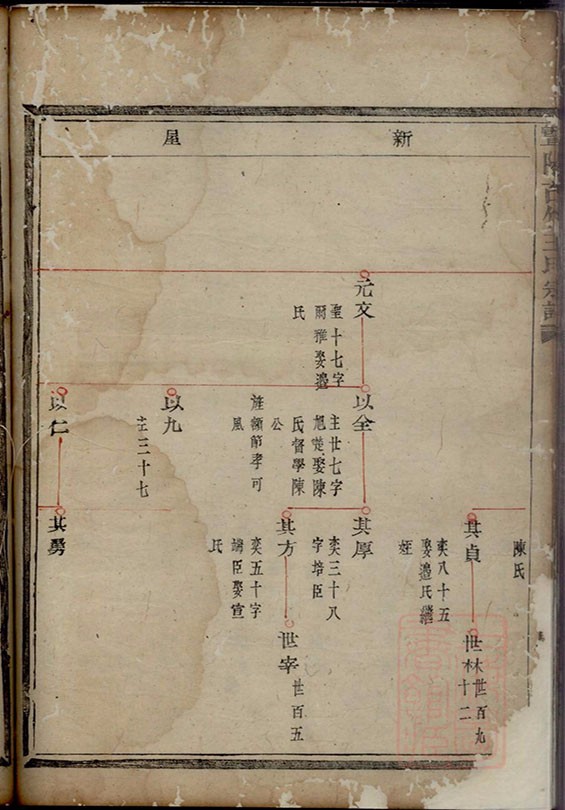 新屋
陳氏
其貞
奕八十五
娶邉氏繼
姪
世林
世百九
十二
元文
聖十七字
爾雅娶邉
氏
以全
主廿七字
旭楚娶陳
氏督學陳
公
旌額節孝可
風
其厚
奕三十八
字培臣
其方
奕五十字
端臣娶宣
氏
世宰
世百五
以九
主三十七
以仁
其勇